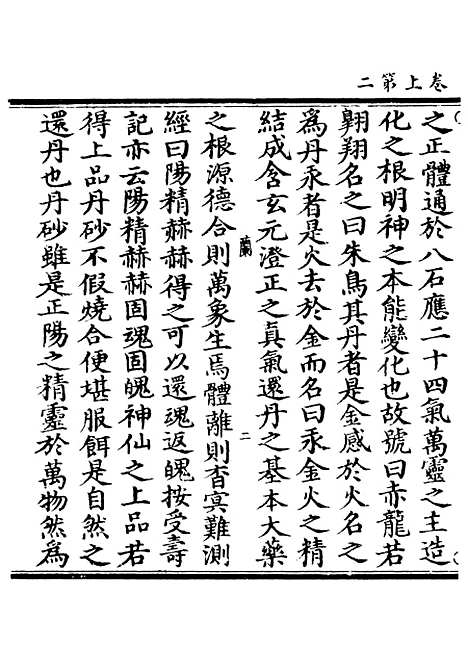 卷上第二
之正體通於八石應二十四氣萬靈之主造
化之根明神之本能變化也故號曰赤龍若
翺翔名之曰朱鳥其丹者是金感於火名之
爲丹汞者是火去於金而名曰汞金火之精
結成含玄元澄正之真氣還丹之基本大藥
蘭 二
之根源德合則萬象生焉體離則杳冥難測
經曰陽精赫赫得之可以還魂返魄按受壽
記亦云陽精赫赫固魂固魄神仙之上品若
得上品丹砂不假燒合便堪服餌是自然之
還丹也丹砂雖是正陽之精靈於萬物然爲